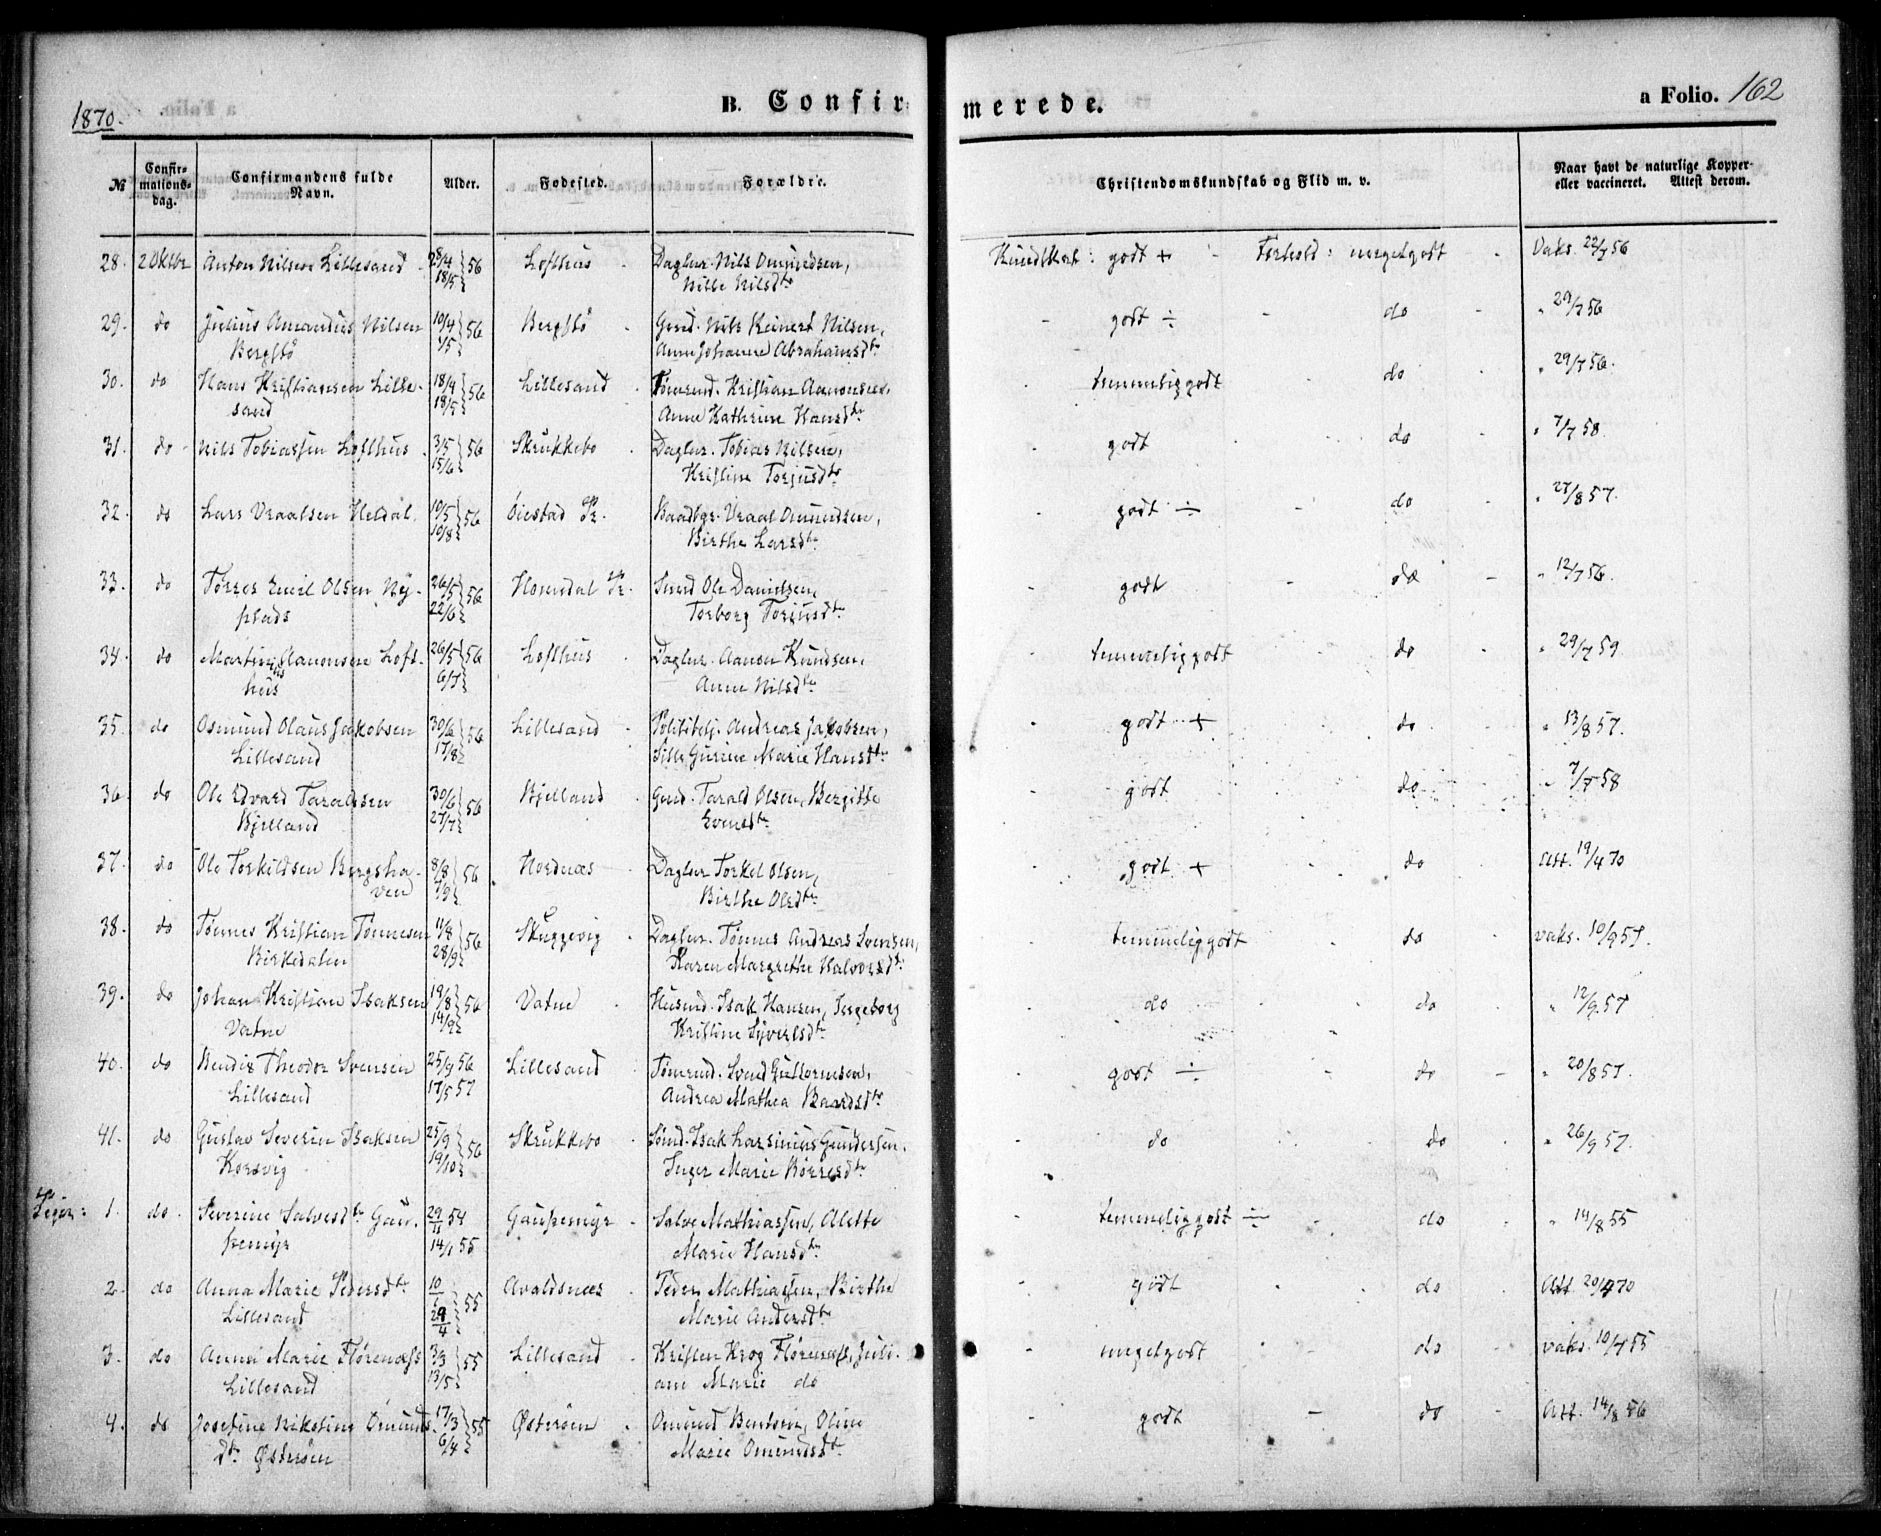 1870.
B. Confir-
merede.
a Folio. 162
№
Confir-
mations-
dag.
Confirmandens fulde
Navn.
Alder.
Fødested.
Forældre.
Christendomskundskab og Flid m. v.
Naar havt de naturlige Kopper
eller vaccineret. Attest derom.
28. 2 Oktbr Anton Nilsen Lillesand 56 Lofthus Daglnr. Nils Omundsen, godt + Forhold: megetgodt Vaks. 22/7 56
18/5 Nille Nilsdtr
29. do Julius Amandus Nilsen 10/4 56 Bergstø Nils Reinert Nilsen, godt ÷ do " 29/7 56
Bergstø Anne Johanne Abrahamsdtr
30. do Hans Kristiansen Lille- 18/4 56 Lillesand Tømrmd. Kristian Aanonsen, temmeliggodt do " 29/7 56.
sand 18/5 Anne Kathrine Hansdtr
31. do Nils Tobiassen Lofthus 3/5 56 Skrukkebo Daglnr. Tobias Nilsen, godt do " 7/7 58
15/6 Kristine Torjusdtr
32. do Lars Vraalsen Heldal 10/5 56 Øiestad Pr. Baadbgr. Vraal Omundsen, godt ÷ do " 27/8 57.
10/8 Birthe Larsdtr
33. do Tørres Emil Olsen Ny- 26/5 56 Homedal Pr. Smed Ole Danielsen, godt do " 12/7 56.
plads 22/6 Torborg Torjusdtr
34. do Aanonsen Loft- 26/5 56 Lofthus Daglnr. Aanon Knudsen, temmeliggodt do " 29/7 59
hus 6/7 Anne Nilsdtr
35. do Osmund Olaus Jakobsen 30/6 56 Lillesand Politibtj. Andreas Jakobsen, godt + do " 13/8 57.
Lillesand 17/8 Sille Gurine Marie Hansdtr
36. do Ole Edvard Taralsen 30/6 56 Bjelland Tarald Olsen, Bergitte godt do " 7/7 58
Bjelland 27/7 Evensdtr
37. do Ole Torkildsen Bergsha- 8/8 56 Hordnæs Daglnr Torkel Olsen, godt + do Att. 19/4 70
ven 7/9 Birthe Olsdtr
38. do Tønnes Kristian Tønnesen 11/8 56 Skuggevig Daglnr. Tønnes Andreas Svensen, temmeliggodt do vaks. 10/9 57.
Birkedalen 28/9 Karen Margrethe Halvorsdtr
39. do Johan Kristian Isaksen 19/8 56 Vatne Husmd. Isak Hansen, Ingeborg do do " 12/9 57
Vatne 14/9 Kristine Syvertsdtr
40. do Bendix Theodor Svensen 25/9 56 Lillesand Tømrmd. Svend Guttormsen, godt ÷ do " 20/8 57.
Lillesand 17/5 57 Andrea Mathea Baardsdtr
41. do Gustav Severin Isaksen 25/9 56 Skrukkebo Sømd. Isak Larsinius Gundersen, do do " 26/9 57.
Korsvig 19/10 Inger Marie Børresdtr
1. do. Severine Salvesdtr Gau- 29/11 54 Gaupemyr Salve Mathiassen, Alette temmeliggodt ÷ do " 14/8 55
pemyr 14/1 55 Marie Hansdtr
2. do Anna Marie Pedersdtr 55 Avaldsnes Peder Mathiassen, Birthe godt do Att 20/4 70
Lillesand Marie Andersdtr
3. do Anna Marie Flørenæss 3/3 55 Lillesand Kristen Krog Flørenæss, Juli- megetgodt do vaks. 10/7 55
Lillesand 13/5 ane Marie do
4. do Josefine Nikoline Omunds- 17/3 55 Østerøen Omund Bentsen, Oline godt do Att. 14/8 56
dtr Østerøen 6/4 Marie Omundsdtr